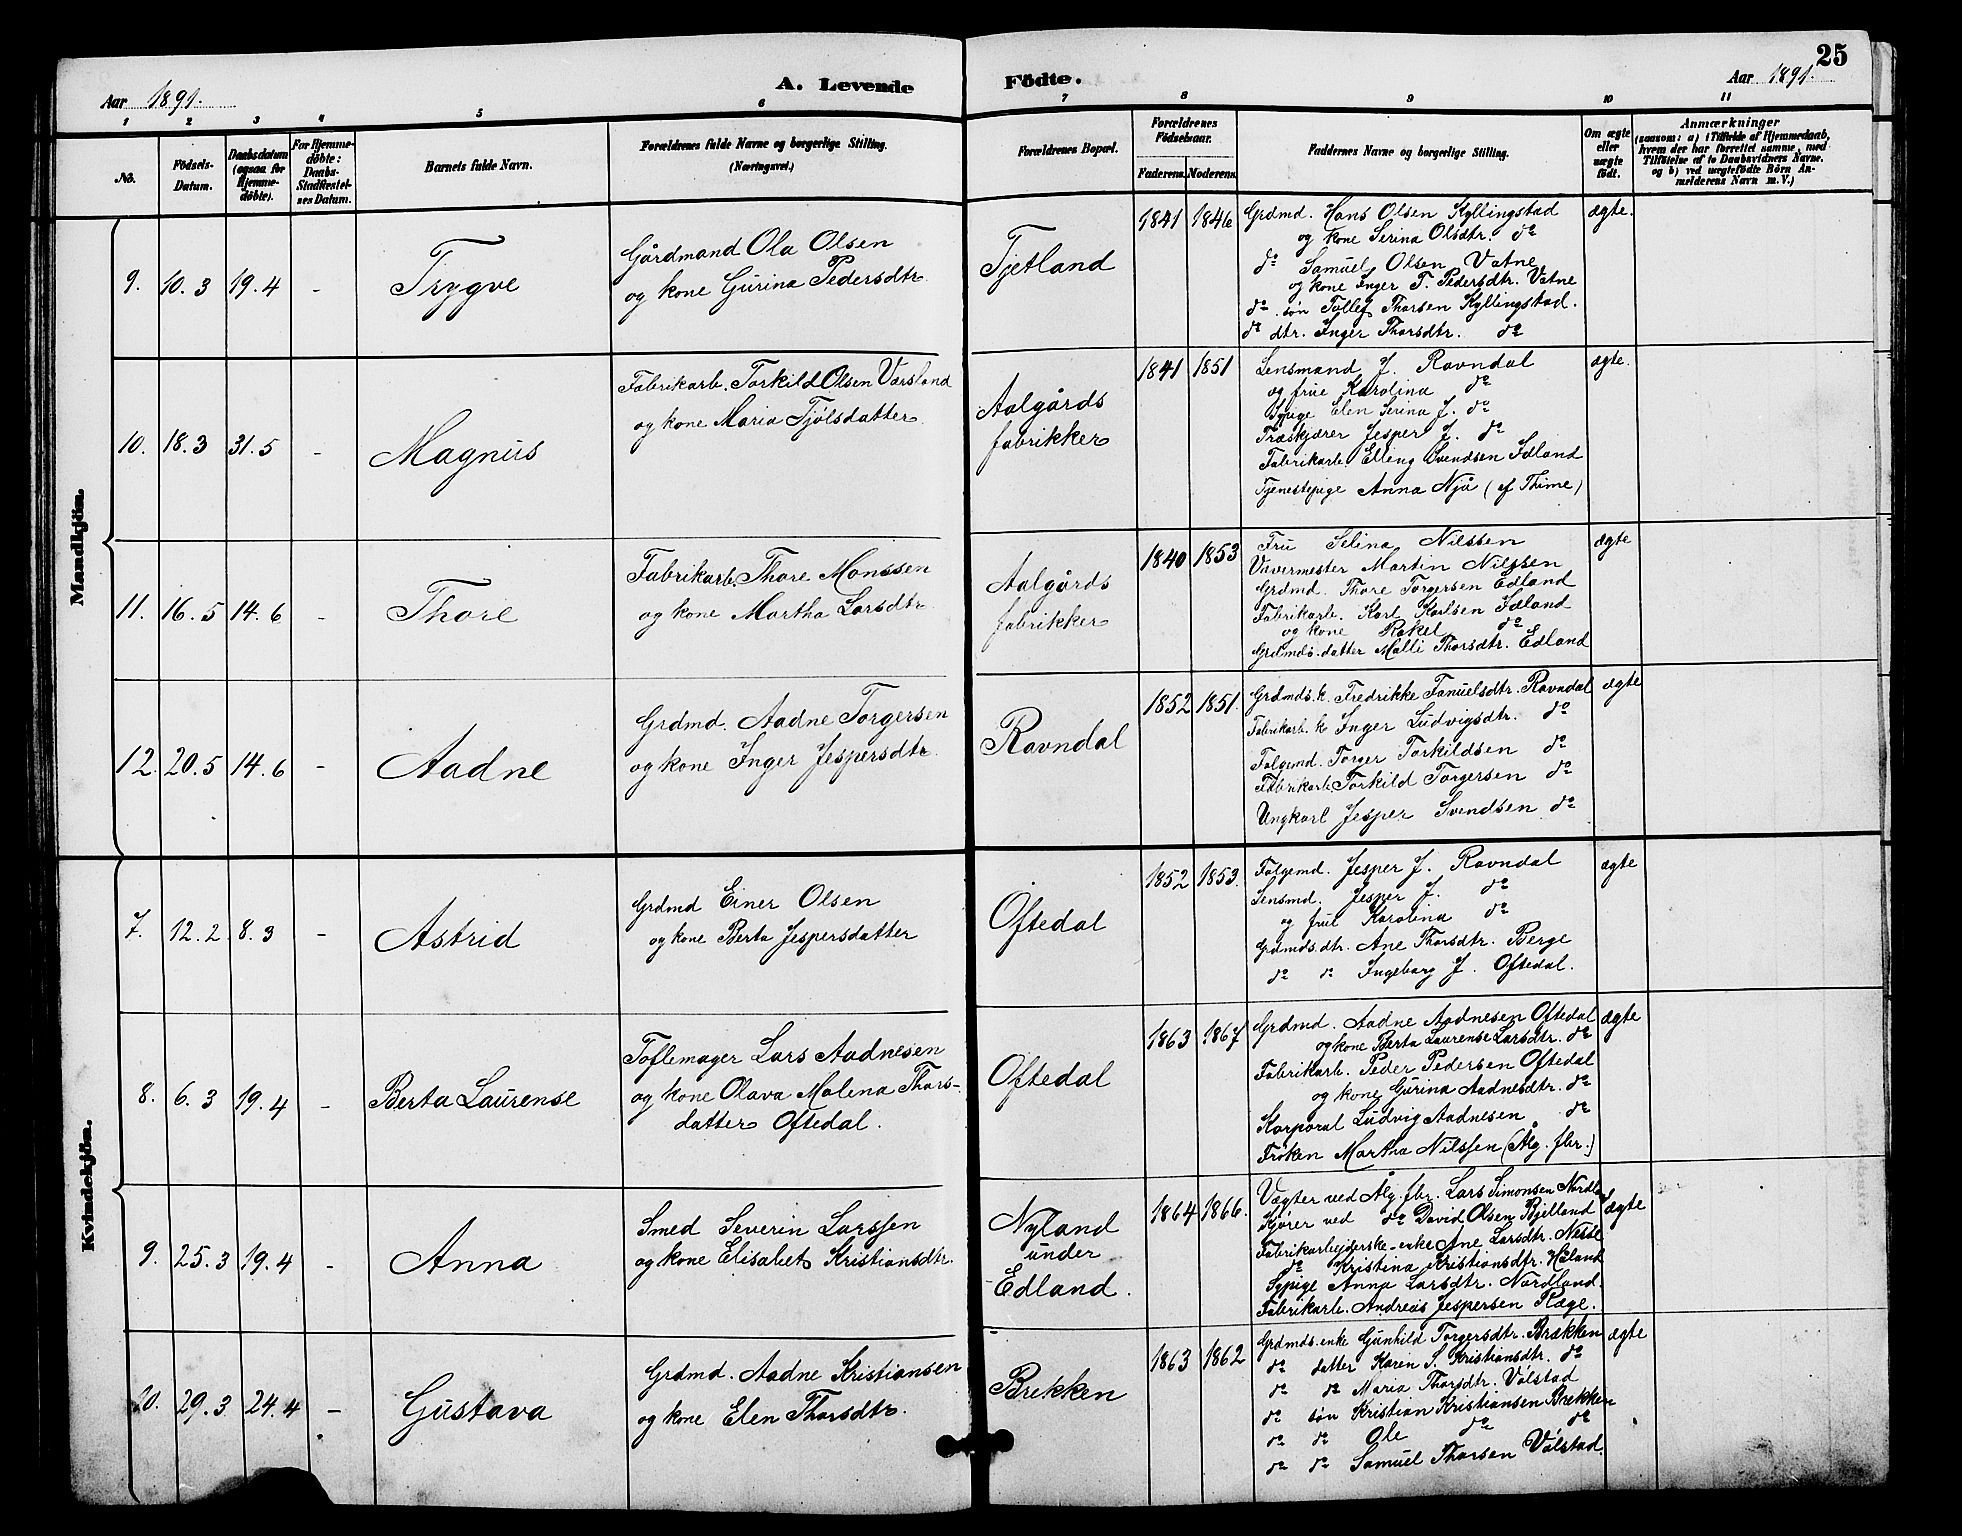 25
Aar 1891.
A. Levende Födte.
Aar 1891.
1 2 3 4 5 6 7 8 9 10 11
No.
Födsels-Datum.
Daabsdatum (ogsaa for Hjemmedöbte).
For Hjemmedöbte: Daabs-Stadfæstelses Datum.
Barnets fulde Navn.
Forældrenes fulde Navne og borgerlige Stilling.
(Næringsvei.)
Forældrenes Bopæl.
Forældrenes Födselsaar.
Faderens. Moderens.
Faddernes Navne og borgerlige Stilling.
Om ægte eller uægte født.
Anmærkninger
(saasom: a) i Tilfælde af Hjemmedaab,
hvem der har forrettet samme, med
Tilföielse af to Daabsvidners Navne.
og b) ved uægtefödte Börn An-
melderens Navn m.V.)
Mandkjön.
9. 10.3 19.4 - Trygve
Gårdmand Ola Olsen
og kone Gurina Pedersdtr.
Tjetland
1841 1846
Grdmd. Hans Olsen Kyllingstad
og kone Serina Olsdtr. do
do Samuel Olsen Vatne
og kone Inger T. Pedersdtr. Vatne
do søn Tollef Thorsen Kyllingstad.
do dtr. Inger Thorsdtr. do
ægte.
10. 18.3 31.5 - Magnus
Fabrikarb. Torkild Olsen Varsland
og kone Maria Tjølsdatter
Aalgårds
fabrikker
1841 1851
Lensmand J. Ravndal
og frue Karolina do
Sypige Elen Serina J. do
Træskjærer Jesper J. do
Fabrikarb. Elling Svendsen Edland
Tjenestepige Anna Njå (af Thime)
ægte.
11. 16.5 14.6 - Thore
Fabrikarb. Thore Monssen
og kone Martha Larsdtr.
Aalgårds
fabrikker
1840 1853
Fru Selina Nilssen
Vævermester Martin Nilssen
Grdmd. Thore Torgersen Edland
Fabrikarb. Karl Karlsen Edland
og kone Rakel do
Grdmds. datter Malli Thorsdtr. Edland
ægte
12. 20.5 14.6 - Aadne
Grdmd. Aadne Torgersen
og kone Inger Jespersdtr.
Ravndal
1852 1851.
Grdmds. k. Fredrikke Fanuelsdtr. Ravndal
Fabrikarb. k. Inger Ludvigsdtr. do
Folgemd. Torger Torkildsen do
Fabrikarb. Torkild Torgersen do
Ungkarl Jesper Svendsen do
ægte
Kvindekjön.
7. 12.2 8.3 - Astrid
Grdmd Einer Olsen
og kone Berta Jespersdatter
Oftedal
1852 1853.
Folgemd. Jesper J. Ravndal
Lensmd. Jesper J. do
og frue Karolina do
Grdmds. dtr. Ane Thorsdtr. Berge
do do Ingeborg J. Oftedal.
ægte
8. 6.3 19.4 - Berta Laurense
Toflemager Lars Aadnesen
og kone Olava Malena Thors-
datter Oftedal.
Oftedal
1863 1867
Grdmd. Aadne Aadnesen Oftedal
og kone Berta Laurense Larsdtr. do
Fabrikarb. Peder Pedersen Oftedal
og kone Gurina Aadnesdtr. do
Korporal Ludvig Aadnesen do
Frøken Martha Nilssen (Ålg. fbr.)
ægte
9. 25.3 19.4 - Anna
Smed Severin Larssen
og kone Elisabet Kristiansdtr.
Nyland
under
Edland.
1864 1866.
Vægter ved Ålg. fbr. Lars Simonsen Nordland
Kjører ved do David Olsen Bjelland
Fabrikarbejderske-enke Ane Larsdtr. Nesse
do Kristina Kristiansdtr. Høland
Sypige Anna Larsdtr. Nordland.
Fabrikarb. Andreas Jespersen Ræge.
ægte
10. 29.3 24.4 - Gustava
Grdmd. Aadne Kristiansen
og kone Elen Thorsdtr.
Brekken
1863 1862
Grdmds. enke Gunhild Torgersdtr. Brækken
do datter Karen S. Kristiansdtr. do
do do Maria Thorsdtr. Vølstad
do søn Kristian Kristiansen Brækken
do do Ole do do
do do Samuel Thorsen Vølstad.
ægte